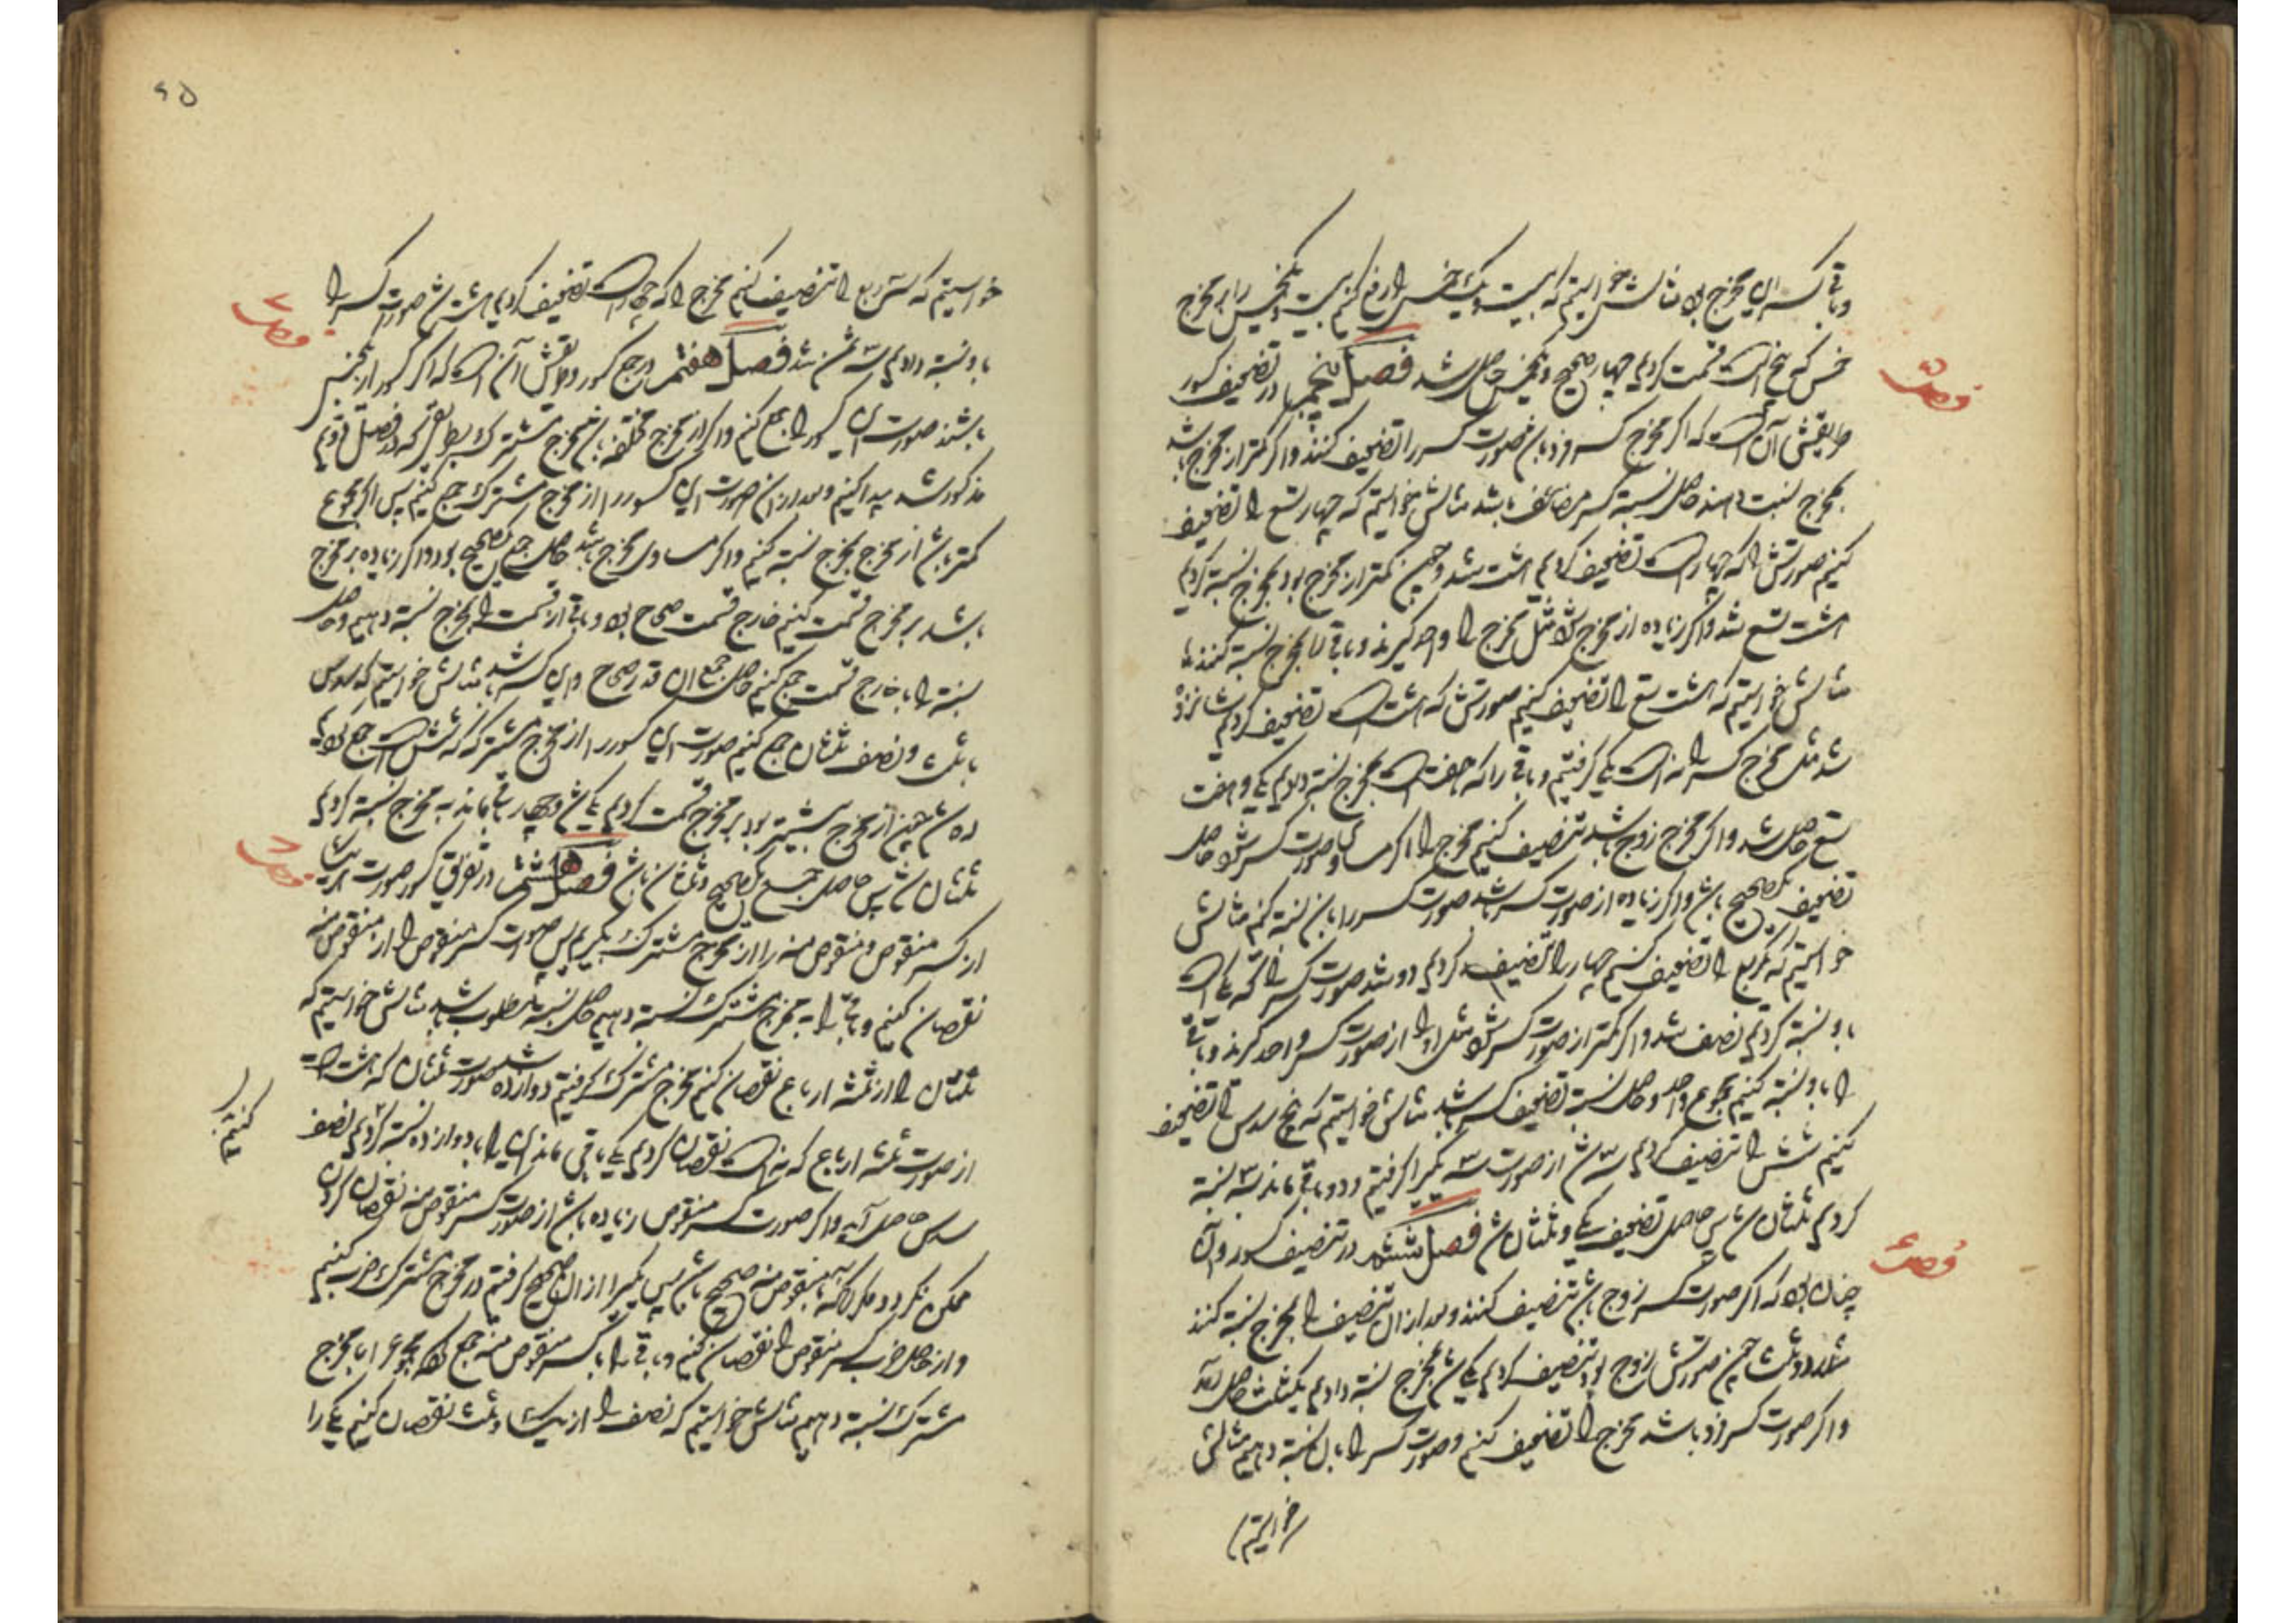 وباقی کسر ان مخرج بود مثالش خواستیم که بیست ویک خمس را رفع کنیم بیست ویکخمس را بر مخرج
خمس که پنج است قسمت کردیم چهار صحیح ویکخمس حاصل شد فصل پنجم در تضعیف کسور
طریقش آن است که اگر مخرج کسر فرد باشد صورت کسر را تضعیف کنند واگر کمتر از مخرج باشد
بمخرج نسبت دهند حاصل نسبة کسر مضاعف باشد مثالش خواستیم که چهار تسع را تضعیف
کنیم صورتش را که چهار است تضعیف کردیم هشت شد وچون کمتر از مخرج بود بمخرج نسبة کردیم
هشت تسع شد واگر زیاده از مخرج شود مثل مخرج را واحد گیرند وباقی را بمخرج نسبة کنند
مثالش خواستیم که هشت تسع را تضعیف کنیم صورتش که هشت است تضعیف کردیم شانزده
شد مثل مخرج کسر را نه است یکی گرفتیم وباقی را که هفت است بمخرج نسبة دادیم یکی وهفت
تسع حاصل شد واگر مخرج زوج باشد تنصیف کنیم مخرج را اگر مساوی صورت کسر شود حاصل
تضعیف یک صحیح باشد واگر زیاده از صورت کسر باشد صورت کسر را بان نسبة کنم مثالش
خواستیم که یکربع را تضعیف کنیم چهار را تنصیف کردیم دو شد صورت کسر را که یک است
باو نسبة کردیم نصف شد واگر کمتر از صورت کسر شود مثل او را از صورت کسر واحد گیرند وباقی
را باو نسبة کنیم مجموع واحد وحاصل نسبة تضعیف کسر باشد مثالش خواستیم که پنج سدس را تضعیف
کنیم شش را تنصیف کردیم سه شد از صورت سه یکی را گرفتیم ودو باقی ماند بسه نسبة
کردیم ثلثان شد پس حاصل تضعیف یکی وثلثان شد فصل ششم در تنصیف کسور وآن
چنان بود که اگر صورت کسر زوج باشد تنصیف کنند وبعد از ان تنصیف را بمخرج نسبة کنند
مثلا دو ثلث چون صورتش زوج بود تنصیف کردیم یکی شد بمخرج نسبة دادیم یکثلث حاصل آمد
واگر صورت کسر فرد باشد مخرج را تضعیف کنیم وصورت کسر را بان نسبة دهیم مثالش
خواستیم
فصل ۵
فصل ۶
۶۵
خواستیم که سه ربع را تنصیف کنیم مخرج را که چهار است تضعیف کردیم هشت شد صورت کسر را
باو نسبة دادیم سه ثمن شد فصل هفتم در جمع کسور وطریقش آن است که اگر کسور از یکجنس
باشند صورت این کسور را جمع کنیم واگر از مخرج مختلفه باشد مخرج مشترک بطریقی که در فصل دویم
مذکور شد پیدا کنیم وبعد از ان صورت این کسور را از مخرج مشترک جمع کنیم پس اگر مجموع
کمتر باشد از مخرج بمخرج نسبة کنیم واگر مساوی مخرج باشد حاصل جمع یکصحیح بود واگر زیاده بر مخرج
باشد بر مخرج قسمت کنیم خارج قسمت صحاح بود وباقی از قسمت را بمخرج نسبة دهیم وحاصل
نسبة را با خارج قسمت جمع کنیم حاصل جمع ان قدر صحاح واین کسر باشد مثالش خواستیم که سدس
با ثلث ونصف ثلثان جمع کنیم صورت این کسور را از مخرج مشترک که شش است جمع
ده شد چون از مخرج بیشتر بود بر مخرج قسمت کردیم یکی شد وچهار باقی ماند به مخرج نسبة کردیم
ثلثان شد پس حاصل جمع یکصحیح وثلثان باشد فصل هشتم در تفریق کسور صورت هر یک
از کسر منقوص ومنقوص منه را از مخرج مشترک بگیریم پس صورت کسر منقوص را از منقوص منه
نقصان کنیم وباقی را به مخرج مشترک نسبة دهیم حاصل نسبة مطلوب باشد مثالش خواستیم که
ثلثان را از ثلثه ارباع نقصان کنیم مخرج مشترک گرفتیم دوازده شد صورت ثلثان که هشت است
از صورت ثلثه ارباع که نه است نقصان کردیم یکی باقی ماند این را بدوازده نسبة کردیم نصف
سدس حاصل آید واگر صورت کسر منقوص زیاده باشد از صورت کسر منقوص منه نقصان کردن
ممکن نگردد مگر آنکه با منقوص منه صحیح باشد پس یکی را از ان صحیح گرفتیم در مخرج مشترک ضرب کنیم
واز حاصل ضرب کسر منقوص را نقصان کنیم وباقی را با کسر منقوص منه جمع کنیم مجموع را بمخرج
مشترک نسبة دهیم مثالش خواستیم که نصف را از یک وثلث نقصان کنیم یکی را
فصل ۷
فصل ۸